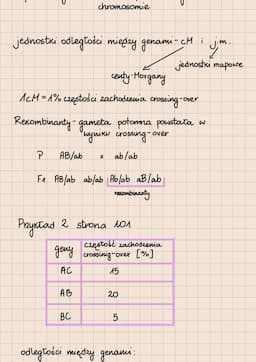 chromosomie
jednostki odległości między genami - cM i j.m.
jednostki mapowe
centy-Morgany
1cM = 1% częstości zachodzenia crossing-over
Rekombinanty - gameta potomna powstała w
wyniku crossing-over
P AB/ab x ab/ab
F1 AB/ab ab/ab Ab/ab aB/ab
rekombinanty
Przykład 2 strona 101
geny częstość zachodzenia
crossing-over [%]
AC 15
AB 20
BC 5
odległości między genami: